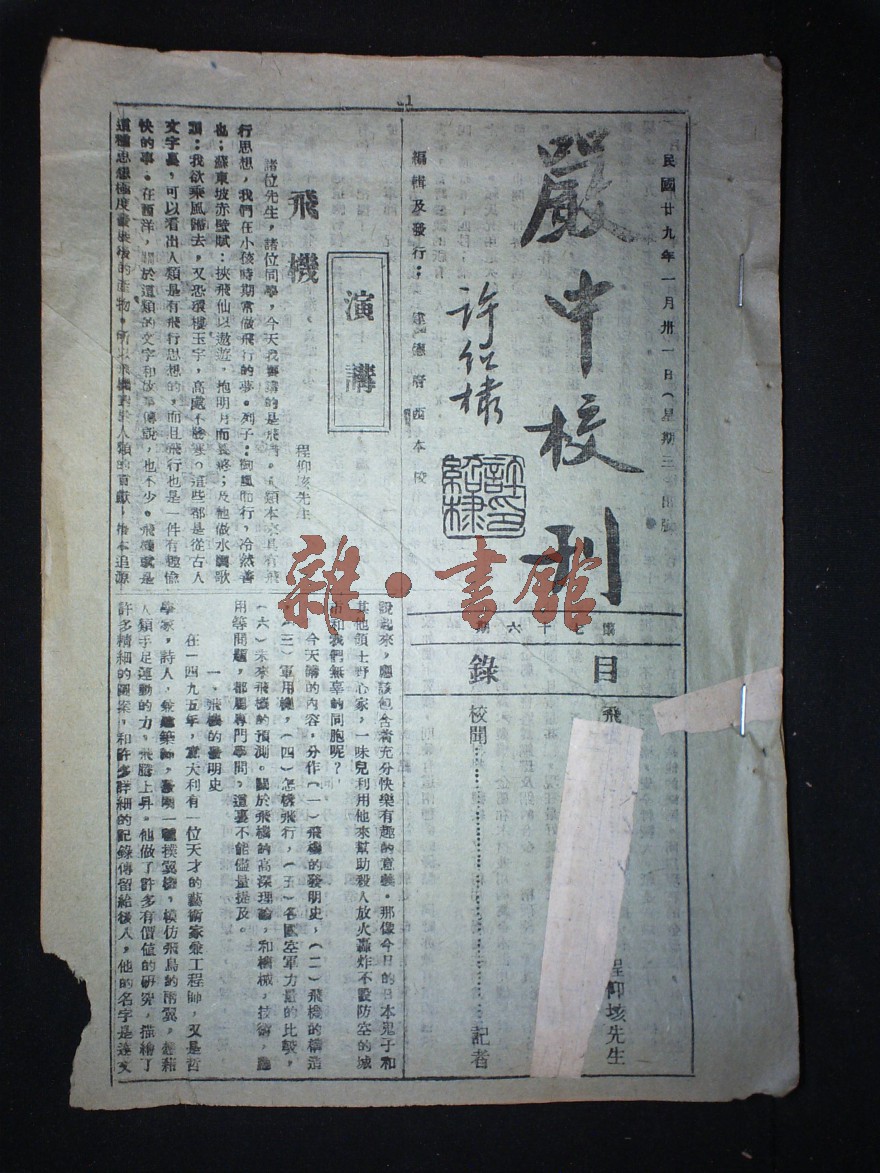 1
民國廿九年一月卅一日(星期三)出版
嚴中校刊
許紹棣
許紹棣印
編輯及發行:建德府西本校
第七十六期
目錄
飛
程仰垓先生
校聞……………………………記者
演講
飛機
程仰垓先生
諸位先生,諸位同學,今天我要講的是飛機。人類本來具有飛
行思想,我們在小孩時期常做飛行的夢。列子:御風而行,冷然善
也;蘇東坡赤壁賦:挾飛仙以遨遊,抱明月而長終;及他做水調歌
頭:我欲乘風歸去,又恐瓊樓玉宇,高處不勝寒。這些都是從古人
文字裏,可以看出人類是有飛行思想的,而且飛行也是一件有趣愉
快的事。在西洋,關於這類的文字和故事傳說,也不少。飛機就是
這種思想極度發展後的產物。所以飛機對於人類的貢獻,推本追源
說起來,應該包含着充分快樂有趣的意義。那像今日的日本鬼子和
其他領土野心家,一味兒利用他來幫助殺人放火轟炸不設防空的城
市和我們無辜的同胞呢?
今天講的內容,分作(一)飛機的發明史,(二)飛機的構造
,(三)軍用機,(四)怎樣飛行,(五)各國空軍力量的比較,
(六)未來飛機的預測。關於飛機的高深理論,和機械,技術,應
用等問題,都屬專門學問,這裏不能儘量提及。
一、飛機的發明史
在一四九五年,意大利有一位天才的藝術家兼工程師,又是哲
學家,詩人,兼建築師,發明一種撲翼機,模仿飛鳥的兩翼,想藉
人類手足運動的力,飛騰上昇。他做了許多有價值的研究,描繪了
許多精細的圖案,和許多詳細的記錄傳留給後人,他的名字是達文
雜·書館